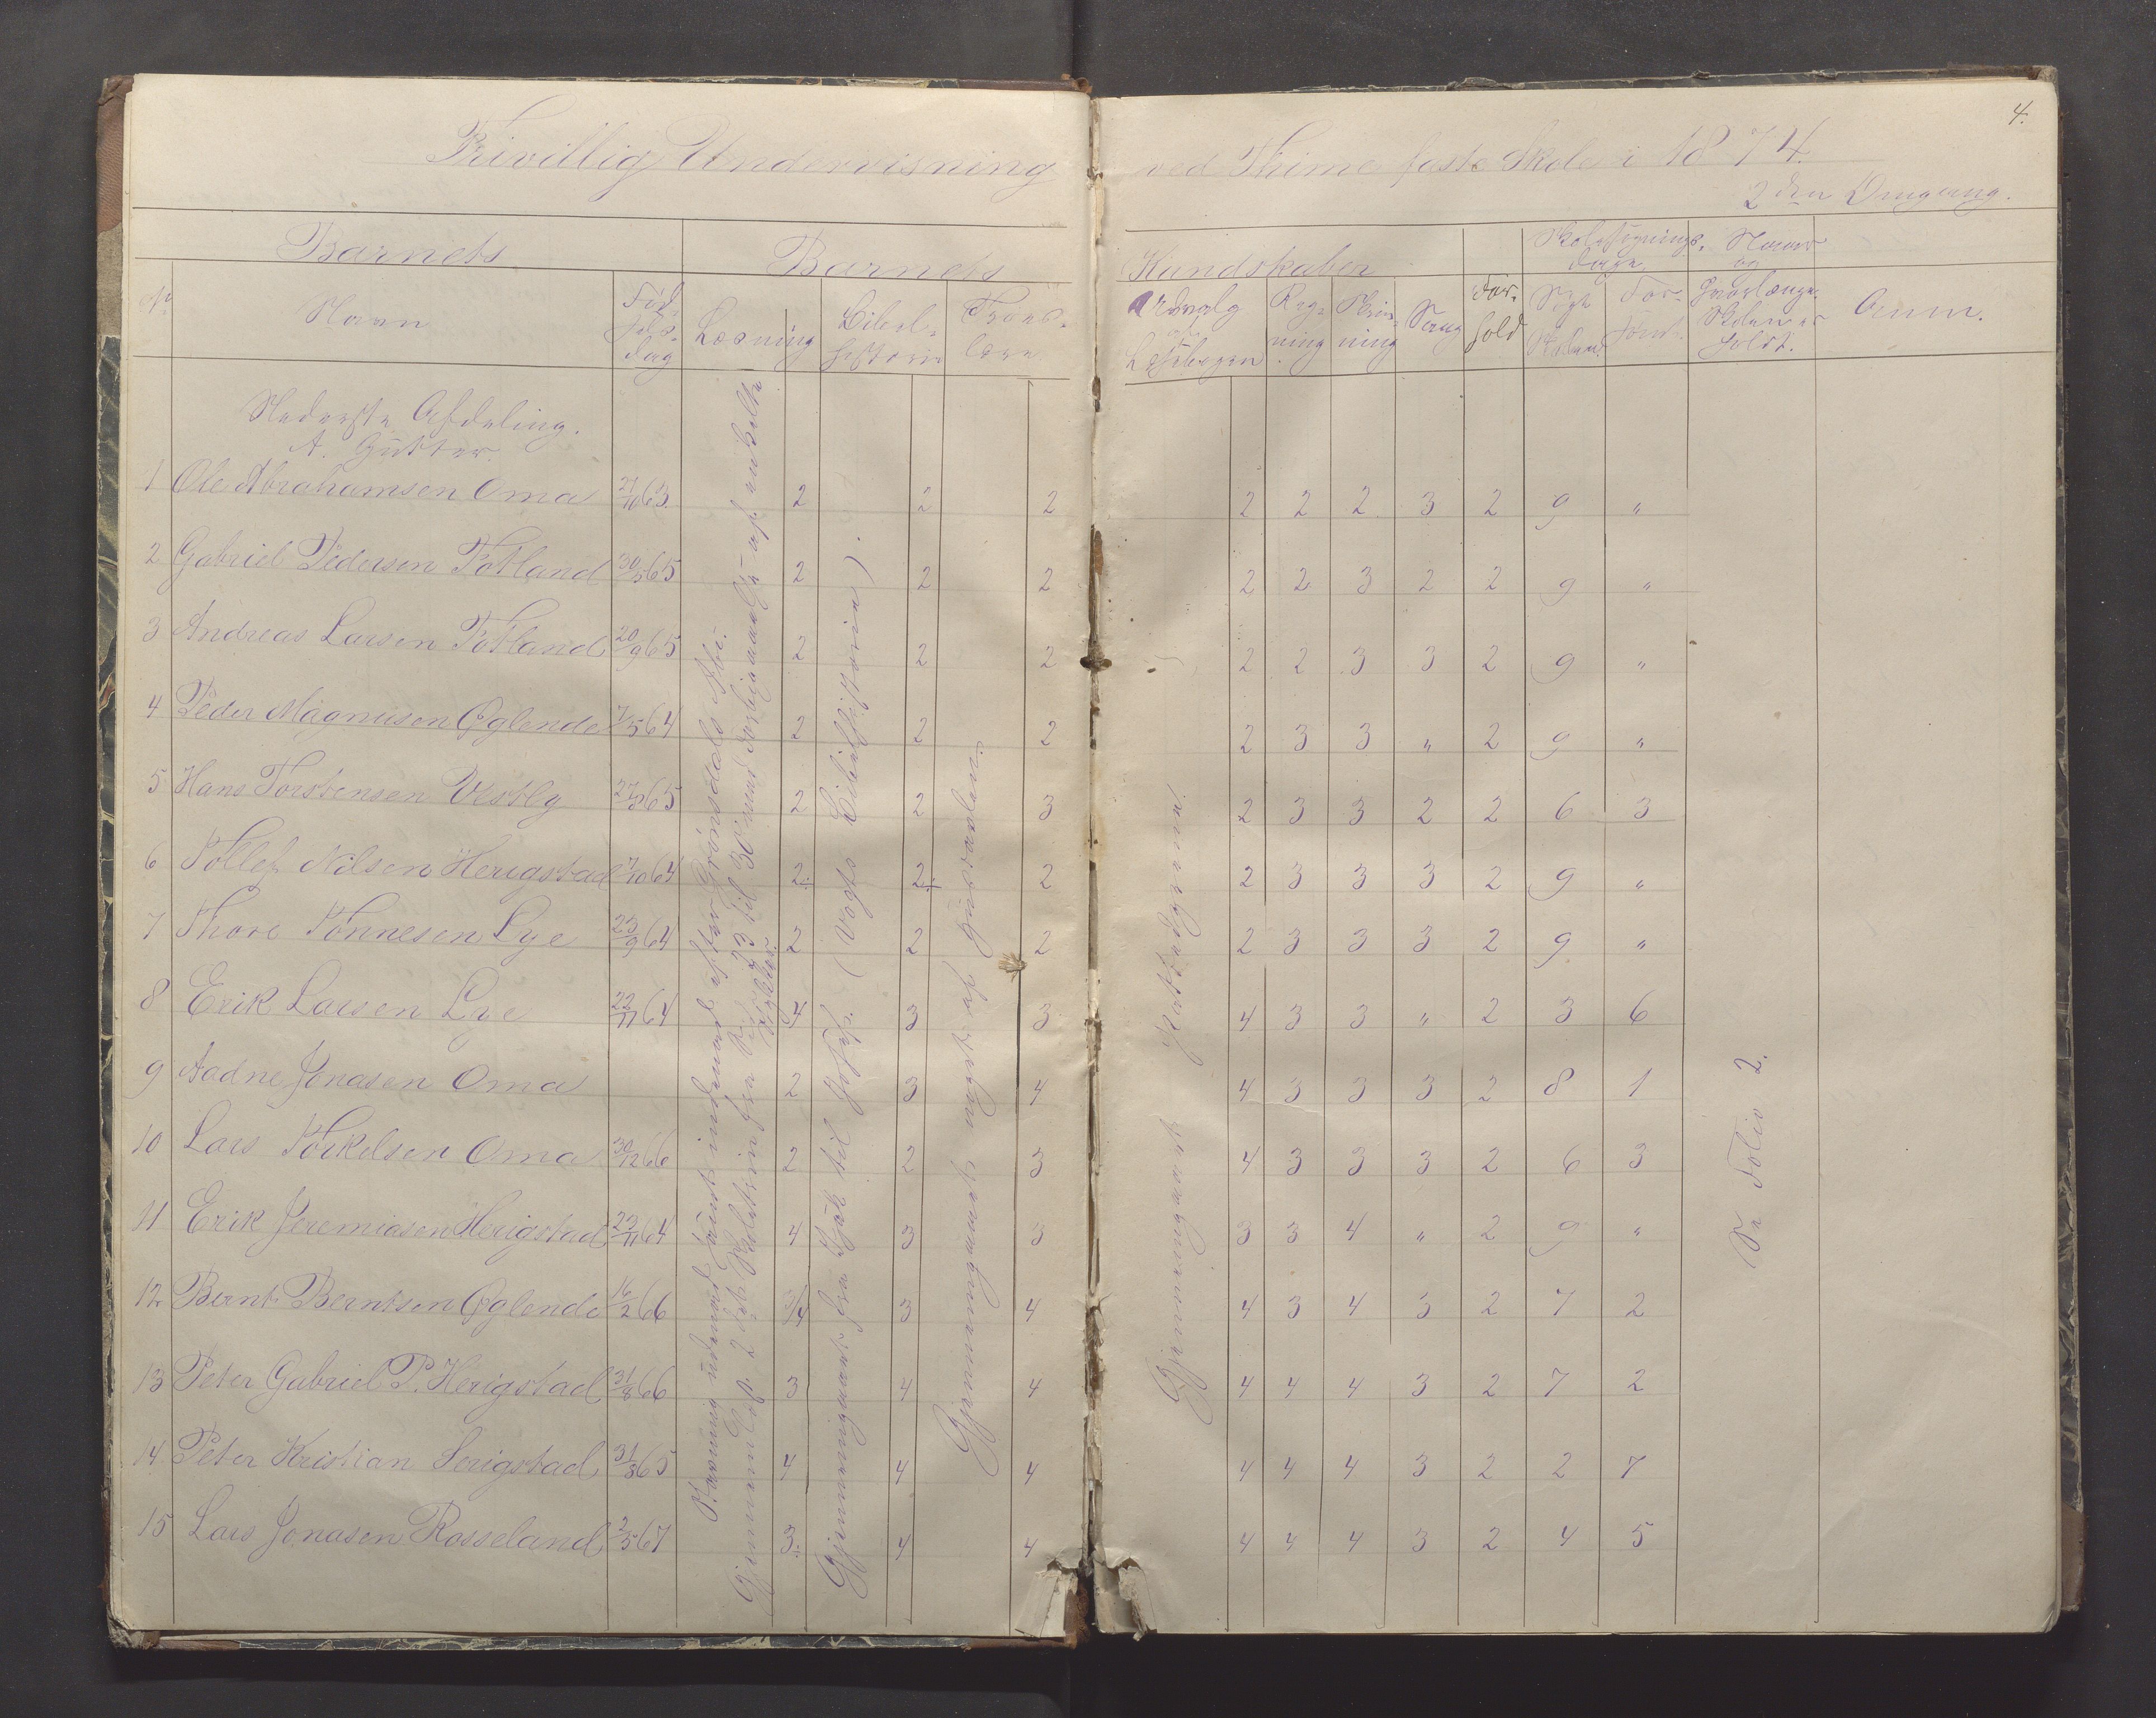 4.
Frivillig Undervisning ved Thime faste Skole i 1874.
2den Omgang.
Barnets
Barnets Kundskaber
Skolesøgnings- dage
Naar og hvorlænge Skolen er holdt.
No Navn Fød- sels- dag Læsning Bibel- historie Troes- lære Udvalg af Læsebogen Reg- ning Skriv- ning Sang For- hold Søgt Skolen For- sømt Anm.
Nederste Afdeling.
A. Gutter.
1 Ole Abrahamsen Oma 27/10 63. 2 2 2 2 2 2 3 2 9 "
2 Gabriel Pedersen Fotland 30/5 65 2 2 2 2 2 3 2 2 9 "
3 Andreas Larsen Fotland 20/9 65 2 2 2 2 2 3 3 2 9 "
4 Peder Magnusen Øglende 7/5 64 2 2 2 2 3 3 " 2 9 "
5 Hans Torstensen Vestly 27/8 65 2 2 3 2 3 3 2 2 6 3
6 Tollef Nilsen Herigstad 7/10 64 2÷ 2÷ 2 2 3 3 3 2 9 "
7 Thore Tønnesen Lye 23/9 64 2 2 2 2 3 3 3 2 9 "
8 Erik Larsen Lye 22/11 64 4 3 3 4 3 3 " 2 3 6
9 Aadne Jonasen Oma 2 3 4 4 3 3 3 2 8 1
10 Lars Torkelsen Oma 30/12 66 2 2 3 4 3 3 3 2 6 3
11 Erik Jeremiasen Herigstad 23/11 64 4 3 3 3 3 4 " 2 9 "
12 Bernt Berntsen Øglende 16/2 66 3/4 3 4 4 3 4 3 2 7 2
13 Peter Gabriel P. Herigstad 31/8 66 3 4 4 4 4 4 3 2 7 2
14 Peter Kristian Serigstad 31/3 65 4 4 4 4 4 4 3 2 2 7
15 Lars Jonasen Rosseland 2/5 67 3÷ 4 4 4 4 4 3 2 4 5
Stavning udenad samt indenad efter Grønsdals Abc.
Gjennemlæst 2det Skoletrin fra Side 3 til 30 samt Gjenfortælling af enkelte Stykker.
Gjennemgaaet fra Isak til Josef. (Vogts Bibelhistorie).
Gjennemgaaet noget af Parten.
Gjennemgaaet
Se Folio 2.